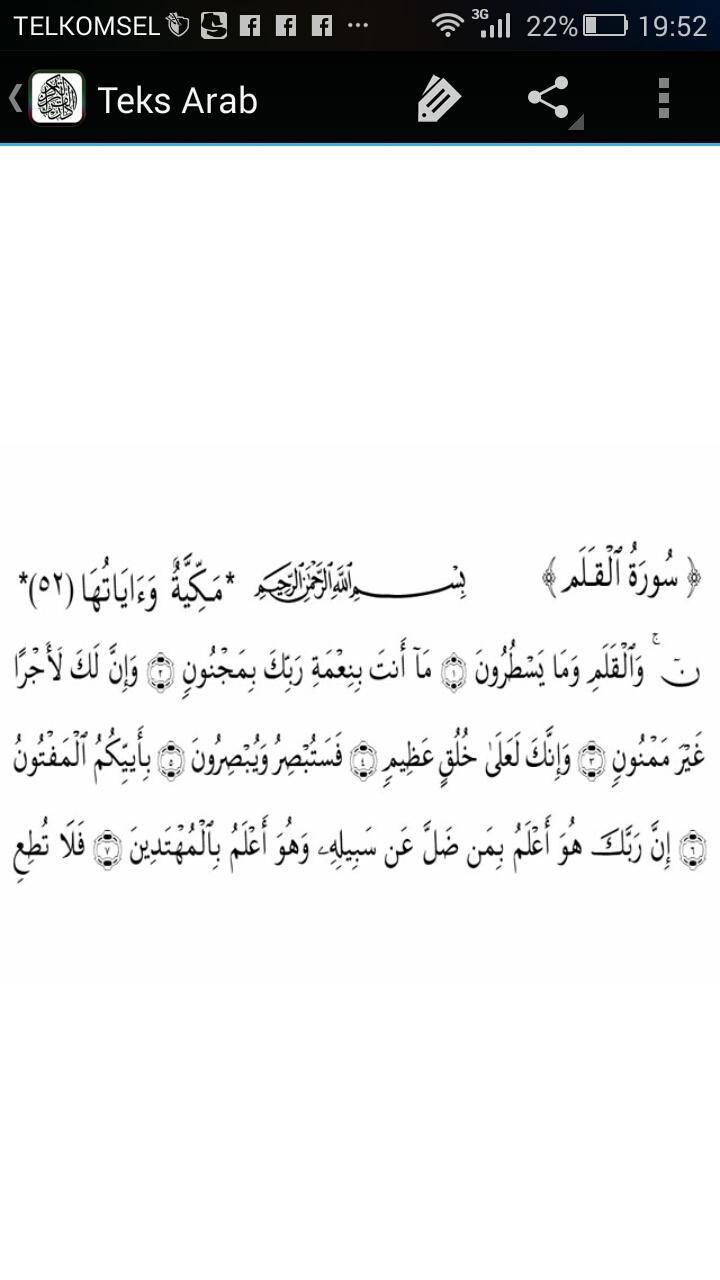 TELKOMSEL 3G 22% 19:52
Teks Arab
﴿سُورَةُ ٱلْقَلَمِ﴾ بِسْمِ ٱللَّهِ ٱلرَّحْمَٰنِ ٱلرَّحِيمِ *مَكِّيَّةٌ وَءَايَاتُهَا (٥٢)*
نٓ ۚ وَٱلْقَلَمِ وَمَا يَسْطُرُونَ ١ مَآ أَنتَ بِنِعْمَةِ رَبِّكَ بِمَجْنُونٍ ٢ وَإِنَّ لَكَ لَأَجْرًا
غَيْرَ مَمْنُونٍ ٣ وَإِنَّكَ لَعَلَىٰ خُلُقٍ عَظِيمٍ ٤ فَسَتُبْصِرُ وَيُبْصِرُونَ ٥ بِأَييِّكُمُ ٱلْمَفْتُونُ
٦ إِنَّ رَبَّكَ هُوَ أَعْلَمُ بِمَن ضَلَّ عَن سَبِيلِهِۦ وَهُوَ أَعْلَمُ بِٱلْمُهْتَدِينَ ٧ فَلَا تُطِعِ